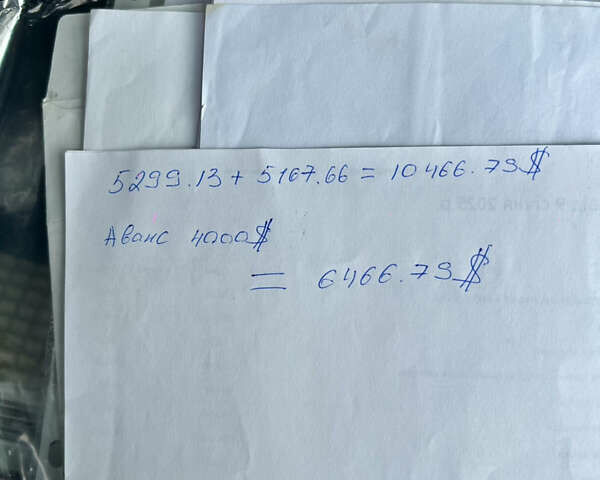 5299.13 + 5167.66 = 10466.79$
Аванс 4000$
= 6466.79$